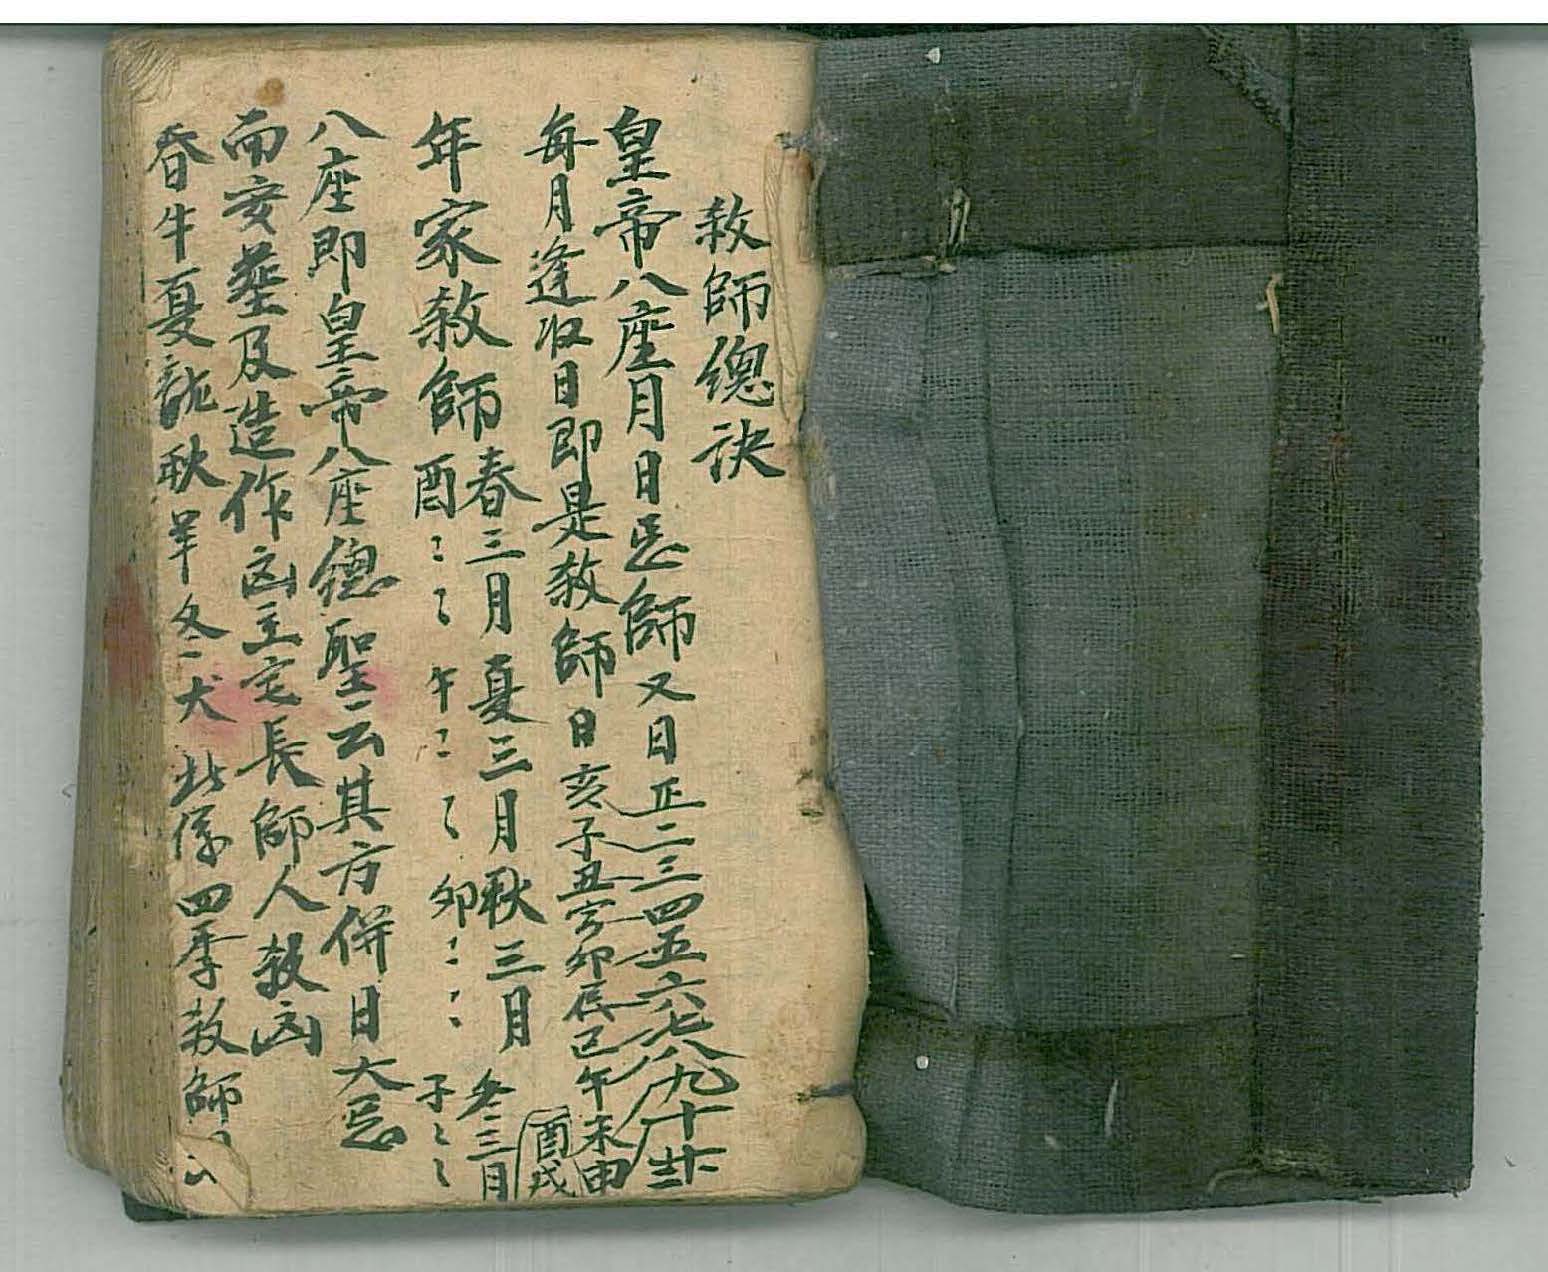 敎師總訣
皇帝八座月日忌師又日正二三四五六七八九十
每月逢收日即是敎師日亥子丑寅卯辰巳午未申酉戌
年家敎師春三月夏三月秋三月冬三月
酉〻〻午〻〻卯〻〻子〻〻
八座即皇帝八座總聖云其方併日大忌
而安葬及造作凶主宅長師人敎凶
春牛夏龍秋羊冬犬此係四季敎師